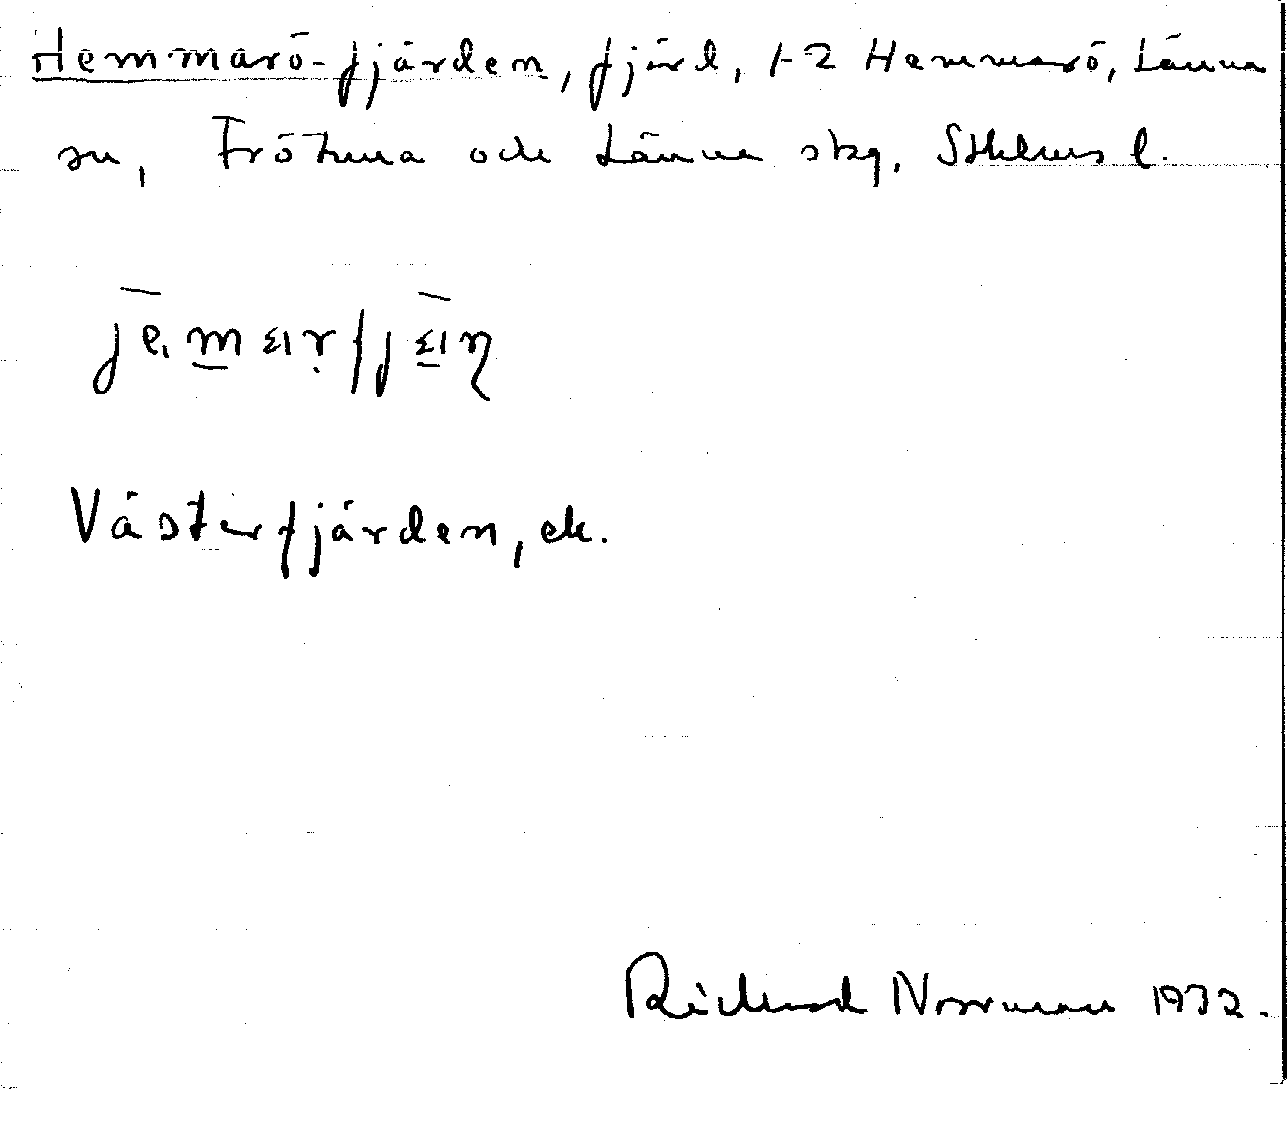 Hemmarö-fjärden, fjärd, 1-2 Hammarö, Länna
sn, Frötuna och Länna skg, Sthlms l.
Västerfjärden, ek.
Richard Norrman 1932.